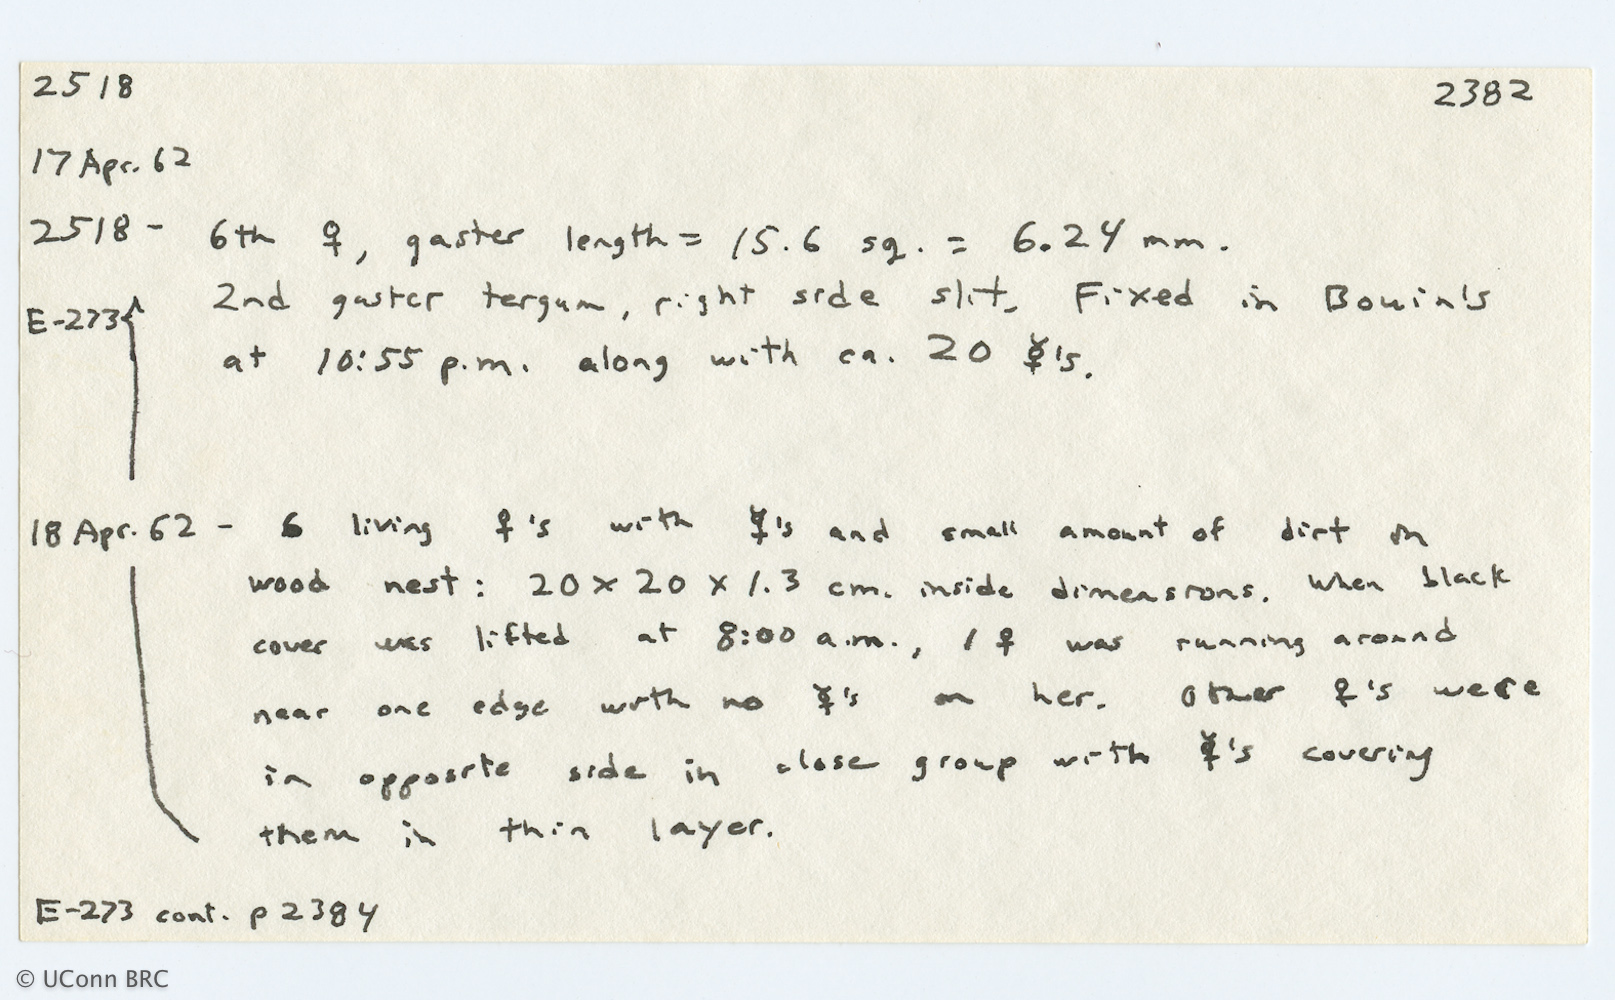 2518 2382
17 Apr. 62
2518 - 6th ♀, gaster length = 15.6 sq. = 6.24 mm.
E-273 { 2nd gaster tergum, right side slit. Fixed in Bouin's
at 10:55 p.m. along with ca. 20 ☿'s.
18 Apr. 62 - 6 living ♀'s with ☿'s and small amount of dirt in
wood nest: 20 x 20 x 1.3 cm. inside dimensions. When black
cover was lifted at 8:00 a.m., 1 ♀ was running around
near one edge with no ☿'s on her. Other ♀'s were
in opposite side in close group with ☿'s covering
them in thin layer.
E-273 cont. p 2384
© UConn BRC